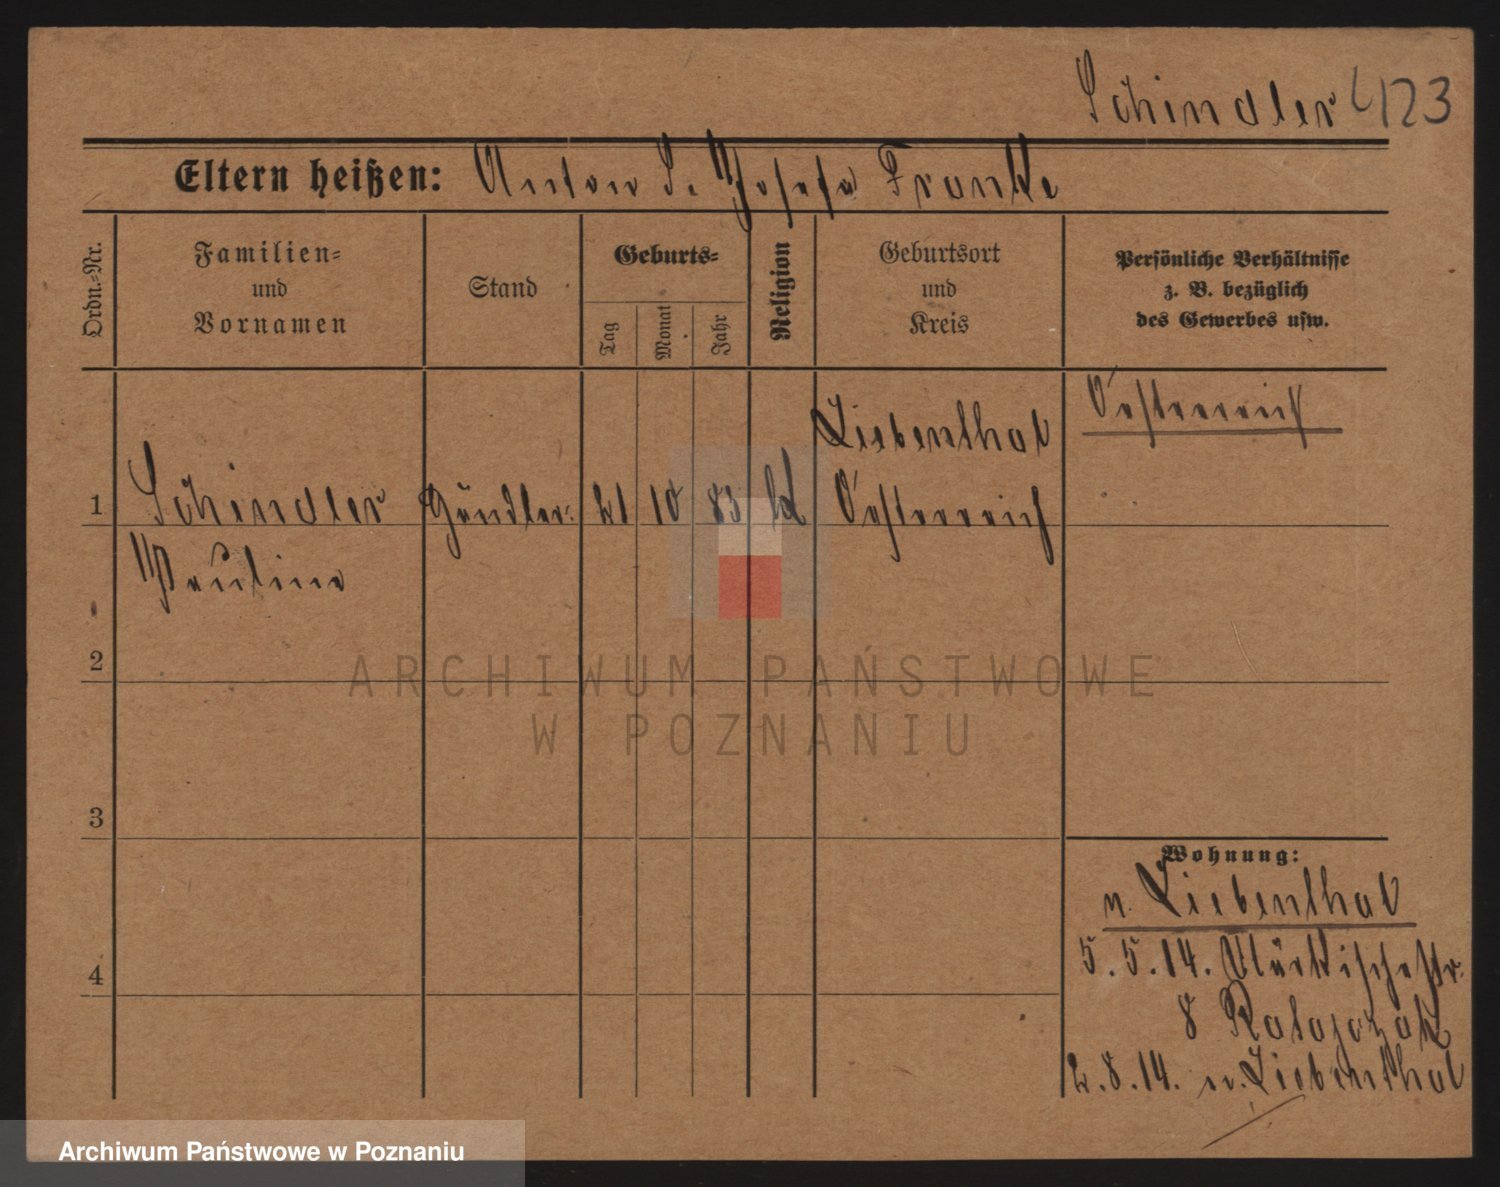 Schindler 4123
Eltern heißen: Anton S. Josefa Franke
Ordn.=Nr.
Familien=
und
Vornamen
Stand
Geburts=
Tag
Monat
Jahr
Religion
Geburtsort
und
Kreis
Persönliche Verhältnisse
z. B. bezüglich
des Gewerbes usw.
Oesterreich
Liebenthal
1 Schindler Händler: 21 10 83 kt Oesterreich
Pauline
2
3
4
Wohnung:
n. Liebenthal
5. 5. 14. Märkischestr.
8 Ratajczak
2. 8. 14. n. Liebenthal
ARCHIWUM PAŃSTWOWE
W POZNANIU
Archiwum Państwowe w Poznaniu